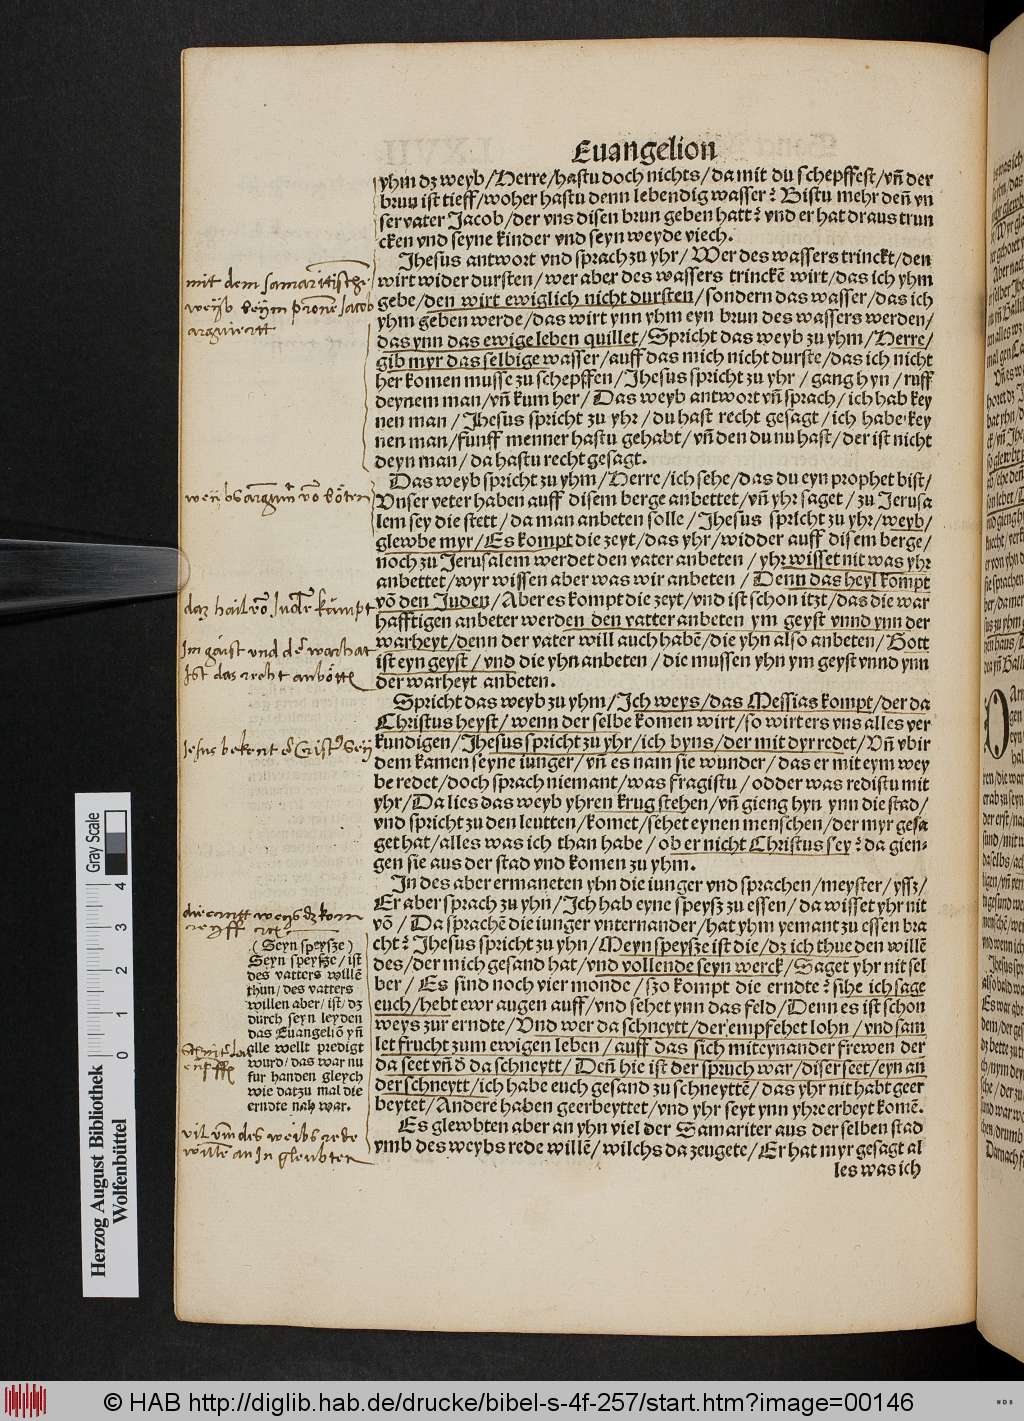 Euangelion
yhm dz weyb/Herre/hastu doch nichts/da mit du schepffest/vñ der
brun ist tieff/woher hastu denn lebendig wasser? Bistu mehr deñ vn
ser vater Jacob/der vns disen brun geben hatt? vnd er hat draus trun
cken vnd seyne kinder vnd seyn weyde viech.
Jhesus antwort vnd sprach zu yhr/Wer des wassers trinckt/den
wirt wider dursten/wer aber des wassers trinckẽ wirt/das ich yhm
gebe/den wirt ewiglich nicht dursten/sondern das wasser/das ich
yhm geben werde/das wirt ynn yhm eyn brun des wassers werden/
das ynn das ewige leben quillet/Spricht das weyb zu yhm/Herre/
gib myr das selbige wasser/auff das mich nicht durste/das ich nicht
her komen musse zu schepffen/Jhesus spricht zu yhr/gang hyn/ruff
deynem man/vñ kum her/Das weyb antwort vñ sprach/ich hab key
nen man/Jhesus spricht zu yhr/du hast recht gesagt/ich habe key
nen man/funff menner hastu gehabt/vñ den du nu hast/der ist nicht
deyn man/da hastu recht gesagt.
Das weyb spricht zu yhm/Herre/ich sehe/das du eyn prophet bist/
Vnser veter haben auff disem berge anbettet/vñ yhr saget/zu Jerusa
lem sey die stett/da man anbeten solle/Jhesus spricht zu yhr/weyb/
glewbe myr/Es kompt die zeyt/das yhr/widder auff disem berge/
noch zu Jerusalem werdet den vater anbeten/yhr wisset nit was yhr
anbettet/wyr wissen aber was wir anbeten/Denn das heyl kompt
võ den Juden/Aber es kompt die zeyt/vnd ist schon itzt/das die war
hafftigen anbeter werden den vatter anbeten ym geyst vnnd ynn der
warheyt/denn der vater will auch habẽ/die yhn also anbeten/Gott
ist eyn geyst/vnd die yhn anbeten/die mussen yhn ym geyst vnnd ynn
der warheyt anbeten.
Spricht das weyb zu yhm/Jch weys/das Messias kompt/der da
Christus heyst/wenn der selbe komen wirt/so wirt ers vns alles ver
kundigen/Jhesus spricht zu yhr/ich byns/der mit dyr redet/Vñ vbir
dem kamen seyne iunger/vñ es nam sie wunder/das er mit eym wey
be redet/doch sprach niemant/was fragistu/odder was redistu mit
yhr/Da lies das weyb yhren krug stehen/vñ gieng hyn ynn die stad/
vnd spricht zu den leutten/komet/sehet eynen menschen/der myr gesa
get hat/alles was ich than habe/ob er nicht Christus sey? da gien-
gen sie aus der stad vnd komen zu yhm.
In des aber ermaneten yhn die iunger vnd sprachen/meyster/yssz/
Er aber sprach zu yhñ/Ich hab eyne speysz zu essen/da wisset yhr nit
võ/Da sprachẽ die iunger vnternander/hat yhm yemant zu essen bra
cht? Jhesus spricht zu yhn/Meyn speysze ist die/dz ich thue den willẽ
des/der mich gesand hat/vnd vollende seyn werck/Saget yhr nit sel
ber/Es sind noch vier monde/szo kompt die erndte? sihe ich sage
euch/hebt ewr augen auff/vnd sehet ynn das feld/Denn es ist schon
weys zur erndte/Vnd wer da schneytt/der empfehet lohn/vnd sam
let frucht zum ewigen leben/auff das sich miteynander frewen der
da seet vñ d̃ da schneytt/Deñ hie ist der spruch war/diser seet/eyn an
der schneytt/ich habe euch gesand zu schneyttẽ/das yhr nit habt geer
beytet/Andere haben geerbeyttet/vnd yhr seyt ynn yhre erbeyt komẽ.
Es glewbten aber an yhn viel der Samariter aus der selben stad
vmb des weybs rede willẽ/wilchs da zeugete/Er hat myr gesagt al
les was ich
mit dem samaritische
weyb beym pronē Jacob
arguiertt
daz hail võ Judē kümpt
Im gaist vnd dē warhat
Ist das recht anbötē
Jesus bekent
(Seyn speysze)
Seyn speysze/ist
des vatters willẽ
thun/des vatters
willen aber/ist/dz
durch seyn leyden
das Euangeliõ yñ
alle wellt predigt
wurd/das war nu
fur handen gleych
wie datzu mal die
erndte nah war.
vil vm des weybs rede
willē an In gleubten
Herzog August Bibliothek
Wolfenbüttel
Gray Scale
0 1 2 3 4
© HAB http://diglib.hab.de/drucke/bibel-s-4f-257/start.htm?image=00146